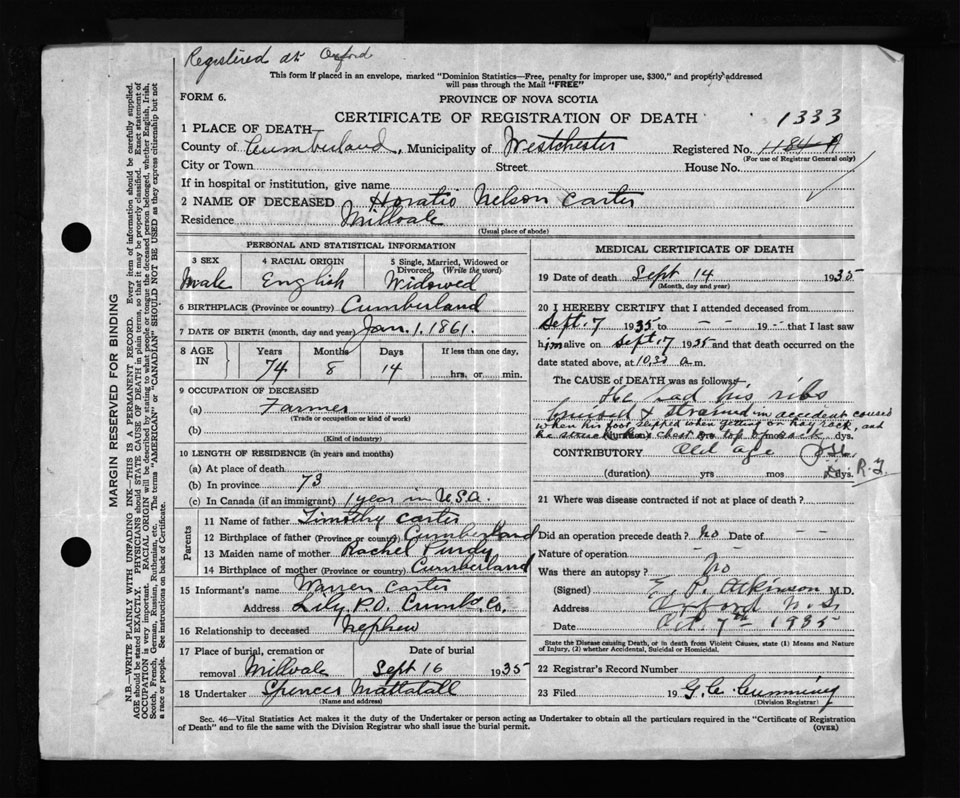 Registered at Oxford
This form if placed in an envelope, marked "Dominion Statistics—Free, penalty for improper use, $300," and properly addressed
will pass through the Mail "FREE"
FORM 6.
PROVINCE OF NOVA SCOTIA
CERTIFICATE OF REGISTRATION OF DEATH
1333
1 PLACE OF DEATH
County of Cumberland, Municipality of Westchester Registered No. 1184 A
(For use of Registrar General only)
City or Town Street House No.
If in hospital or institution, give name
2 NAME OF DECEASED Horatio Nelson Carter
Residence Millvale
(Usual place of abode)
PERSONAL AND STATISTICAL INFORMATION
3 SEX
Male
4 RACIAL ORIGIN
English
5 Single, Married, Widowed or
Divorced, (Write the word)
Widowed
6 BIRTHPLACE (Province or country) Cumberland
7 DATE OF BIRTH (month, day and year) Jan. 1. 1861.
8 AGE IN
Years Months Days If less than one day,
74 8 14 hrs. or min.
9 OCCUPATION OF DECEASED
(a) Farmer
(Trade or occupation or kind of work)
(b)
(Kind of industry)
10 LENGTH OF RESIDENCE (in years and months)
(a) At place of death
(b) In province 73
(c) In Canada (if an immigrant) 1 year in U.S.A.
Parents
11 Name of father Timothy Carter
12 Birthplace of father (Province or country) Cumberland
13 Maiden name of mother Rachel Purdy
14 Birthplace of mother (Province or country) Cumberland
15 Informant's name Warren Carter
Address Lily P.O. Cumb. Co.
16 Relationship to deceased Nephew
17 Place of burial, cremation or Date of burial
removal Millvale Sept 16 1935
18 Undertaker Spencer Mattatall
(Name and address)
MEDICAL CERTIFICATE OF DEATH
19 Date of death Sept 14 1935
(Month, day and year)
20 I HEREBY CERTIFY that I attended deceased from
Sept. 7 1935 to - - 19 - - that I last saw
him alive on Sept. 7 1935 and that death occurred on the
date stated above, at 10.30 a.m.
The CAUSE OF DEATH was as follows:
He had his ribs
bruised & strained in accident caused
when his foot slipped when getting on hay rack, and
he struck his chest on top of rack dys.
CONTRIBUTORY Old age
(duration) yrs mos dys.
R.F.
21 Where was disease contracted if not at place of death?
Did an operation precede death? No Date of - -
Nature of operation
Was there an autopsy? No
(Signed) E. P. Atkinson M.D.
Address Oxford N.S.
Date Oct 7th 1935
State the Disease causing Death, or in death from Violent Causes, state (1) Means and Nature
of Injury, (2) whether Accidental, Suicidal or Homicidal.
22 Registrar's Record Number
23 Filed 19 G. C. Cumming
(Division Registrar)
Sec. 46—Vital Statistics Act makes it the duty of the Undertaker or person acting as Undertaker to obtain all the particulars required in the "Certificate of Registration
of Death" and to file the same with the Division Registrar who shall issue the burial permit.
(OVER)
MARGIN RESERVED FOR BINDING
N.B.—WRITE PLAINLY WITH UNFADING INK—THIS IS A PERMANENT RECORD. Every item of information should be carefully supplied.
AGE should be stated EXACTLY. PHYSICIANS should STATE CAUSE OF DEATH in plain terms, so that it may be properly classified. Exact statement of
OCCUPATION is very important. RACIAL ORIGIN will be described by stating to what people or tongue the deceased person belonged, whether English, Irish,
Scotch, French, German, Russian, Ruthenian, etc. The terms "AMERICAN" or "CANADIAN" SHOULD NOT BE USED as they express citizenship but not
a race or people. See instructions on back of Certificate.